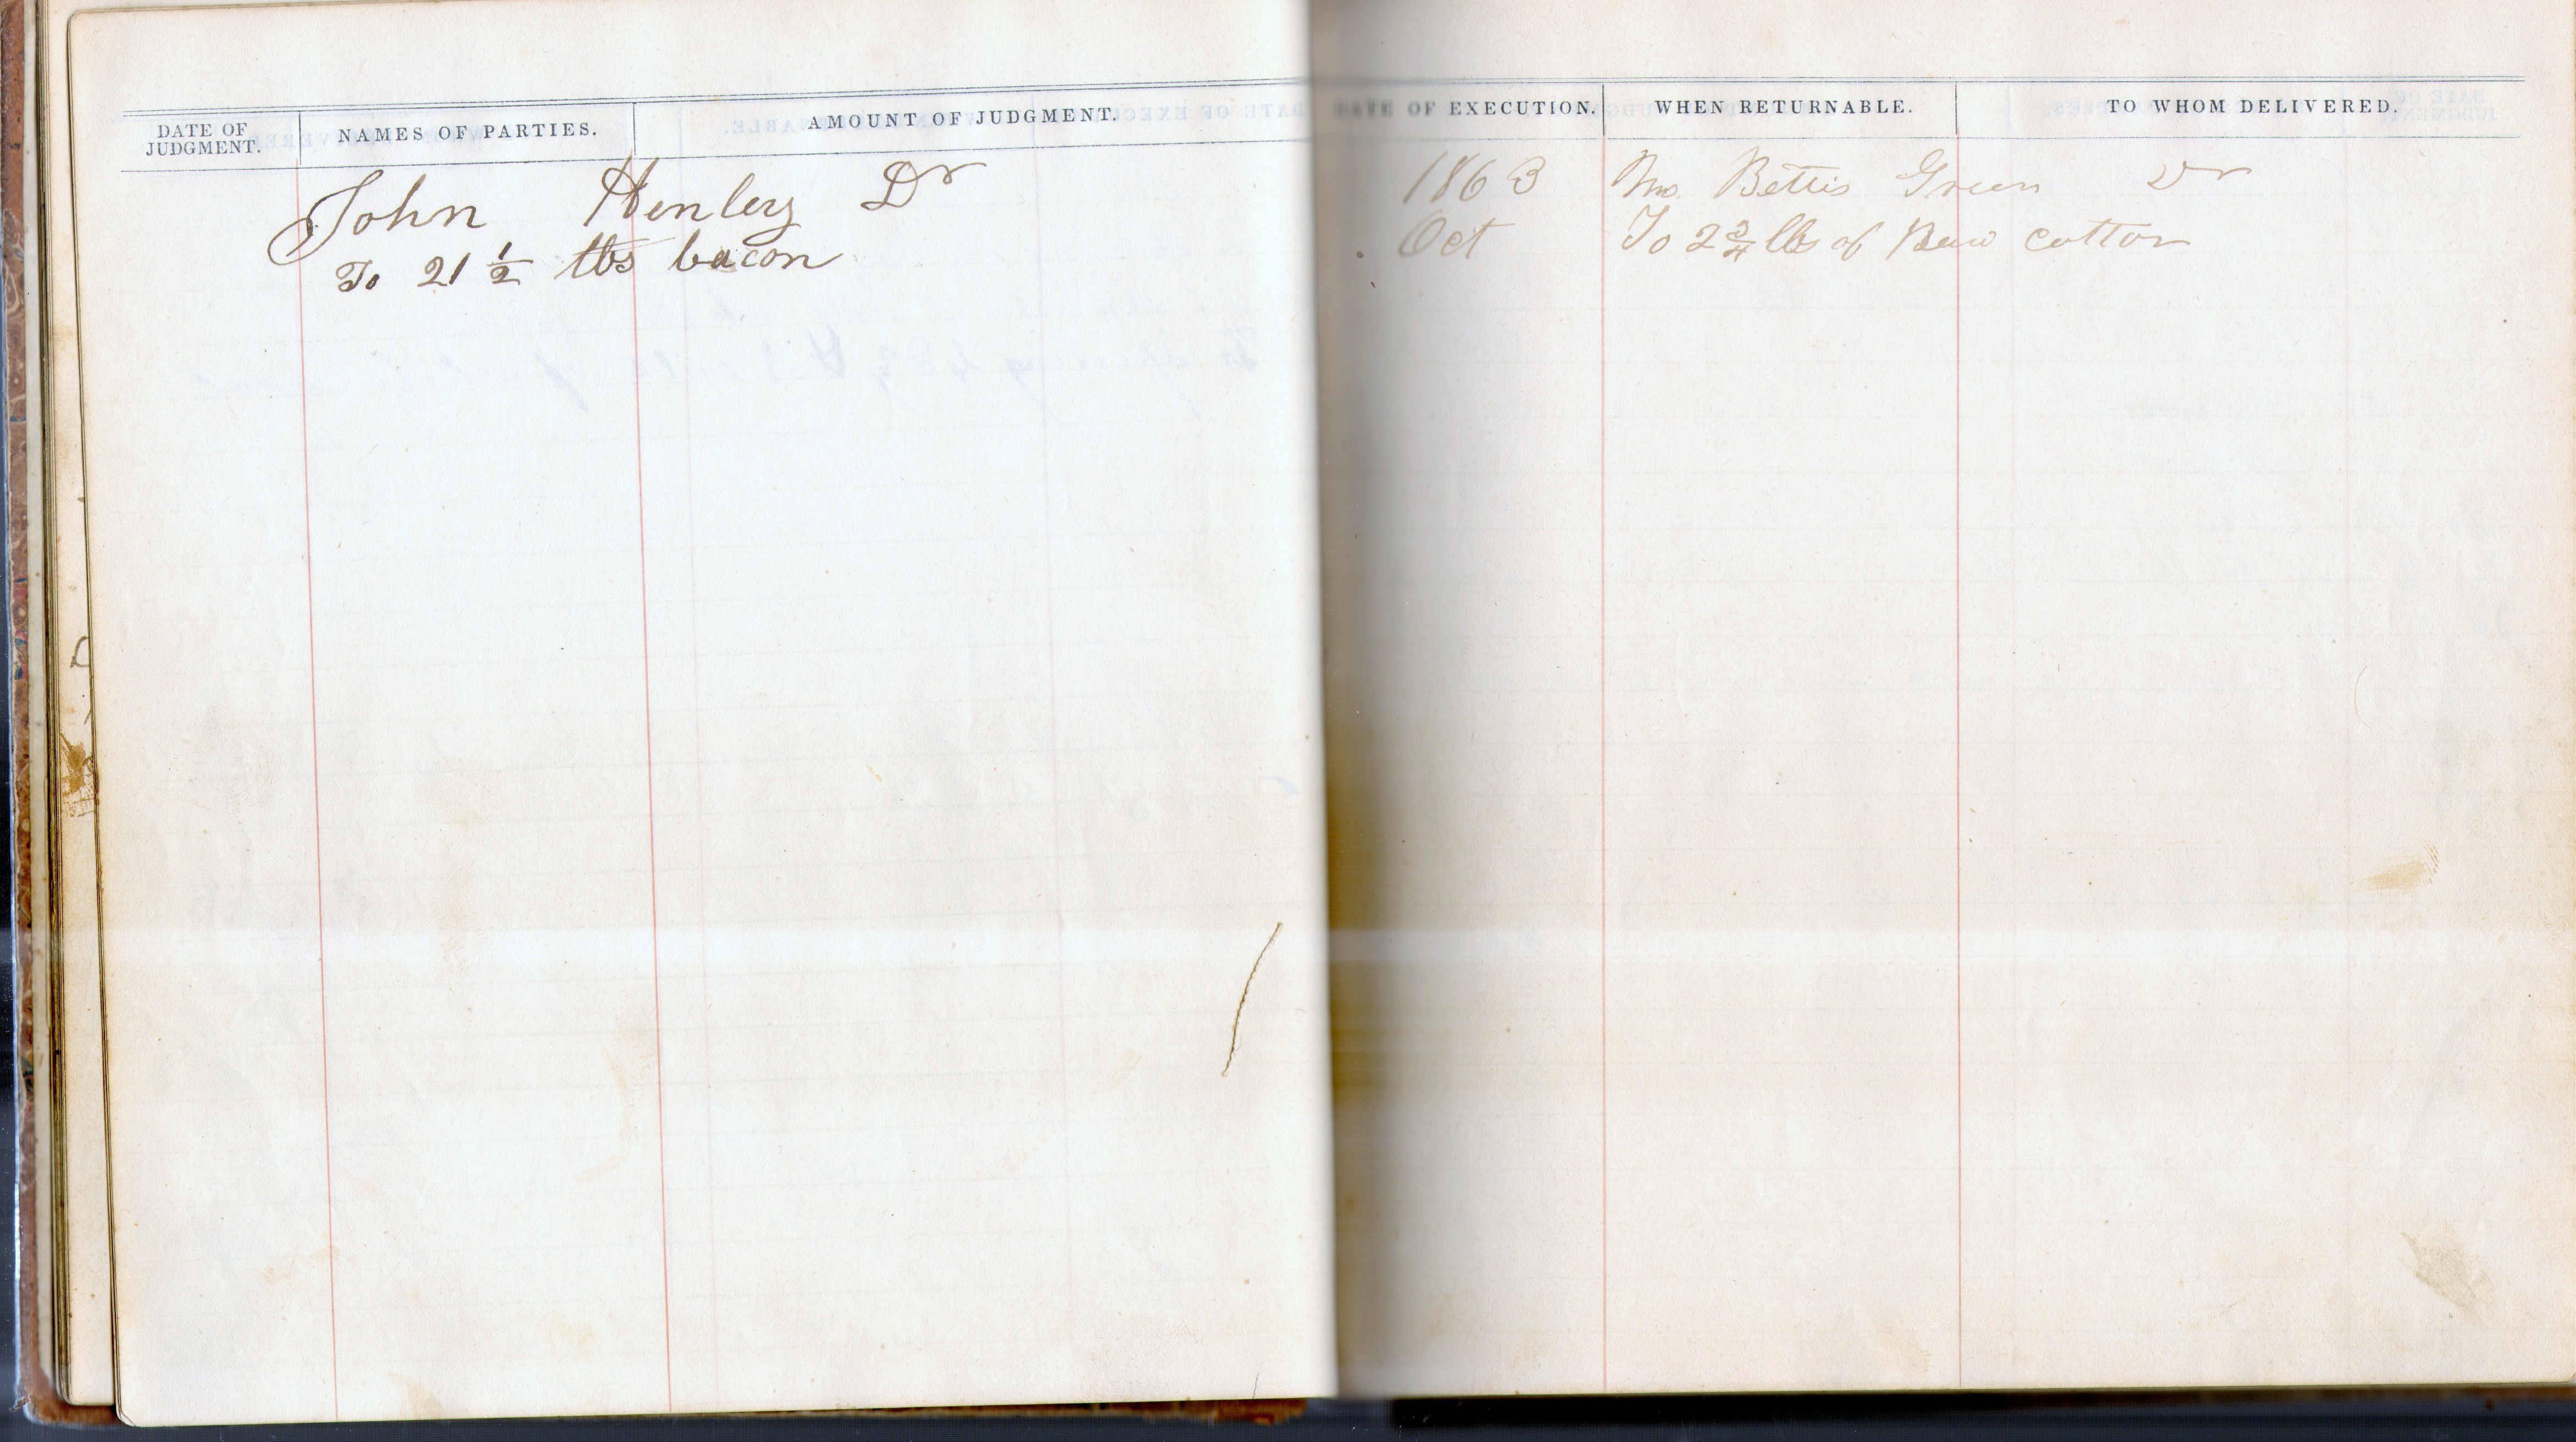 DATE OF JUDGMENT.
NAMES OF PARTIES.
AMOUNT OF JUDGMENT.
John Henley Dr
To 21 1/2 lbs bacon
DATE OF EXECUTION.
WHEN RETURNABLE.
TO WHOM DELIVERED.
1863 Bettis Green Dr
Oct To 2 3/4 lbs of cotton